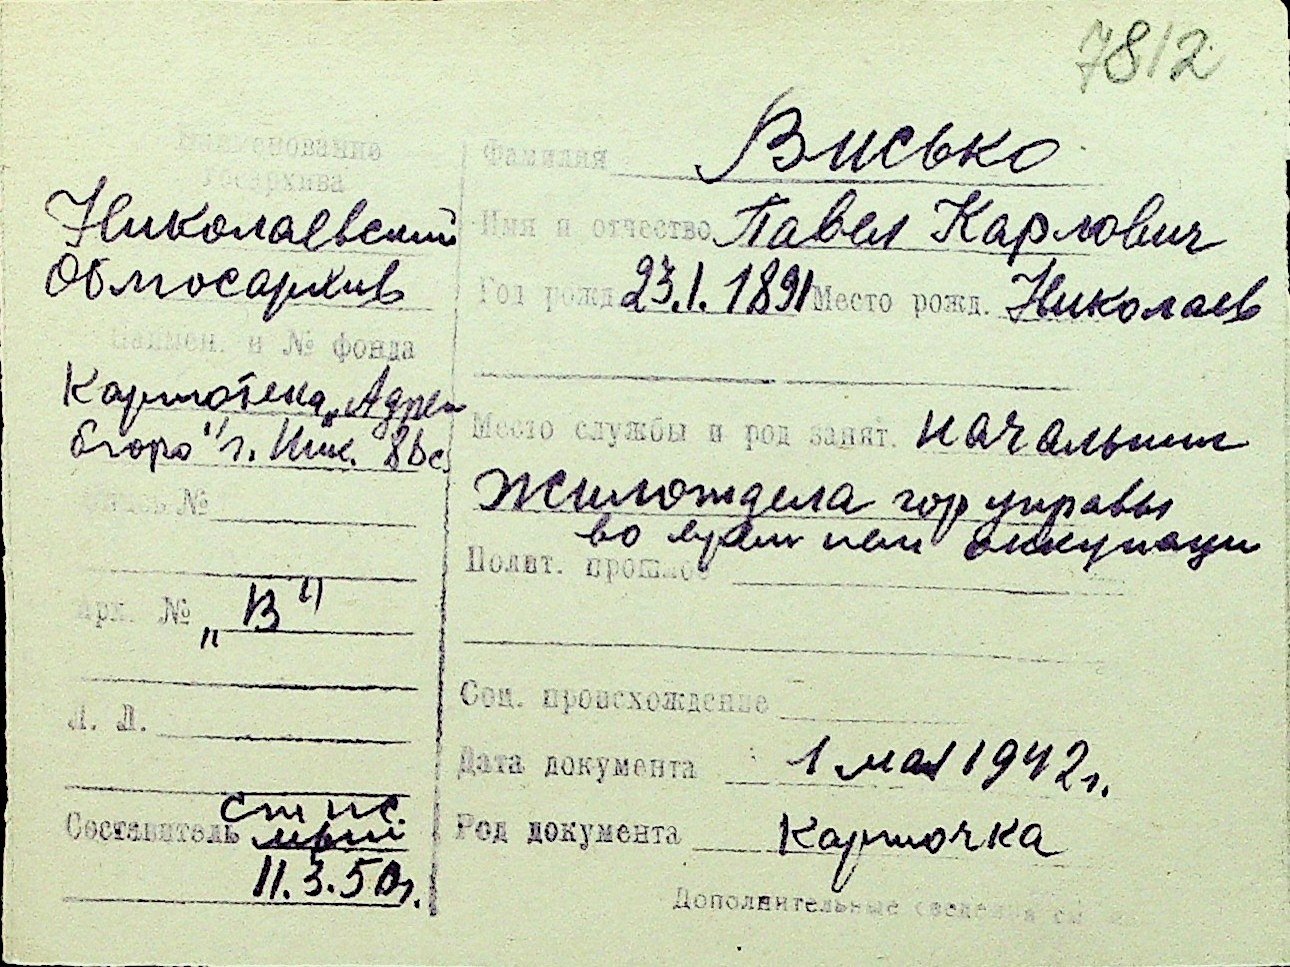 7812
Наименование
госархива
Николаевский
Облгосархив
Наимен. и № фонда
Картотека „Адрес
бюро" г. Ник.
Опись №
Арх. № „В"
Л. Л.
Составитель ст. ис.
11.3.50г.
Фамилия Висько
Имя и отчество Павел Карлович
Год рожд. 23.1.1891 Место рожд. Николаев
Место службы и род занят. начальник
Жилотдела гор управы
во время нем оккупации
Полит. прошлое
Соц. происхождение
Дата документа 1 мая 1942г.
Род документа Карточка
Дополнительные сведения см